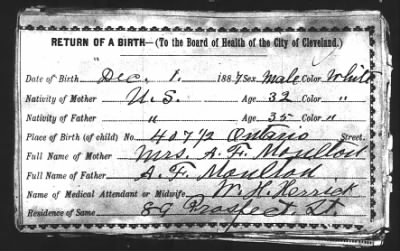 RETURN OF A BIRTH—(To the Board of Health of the City of Cleveland.)
Date of Birth Dec. 1. 1887 Sex Male Color White
Nativity of Mother U.S. Age 32 Color "
Nativity of Father " Age 35 Color "
Place of Birth (of child) No. 407 1/2 Ontario Street.
Full Name of Mother Mrs. A. F. Moulton
Full Name of Father A. F. Moulton
Name of Medical Attendant or Midwife, W. H. Herrick
Residence of Same 89 Prospect St.